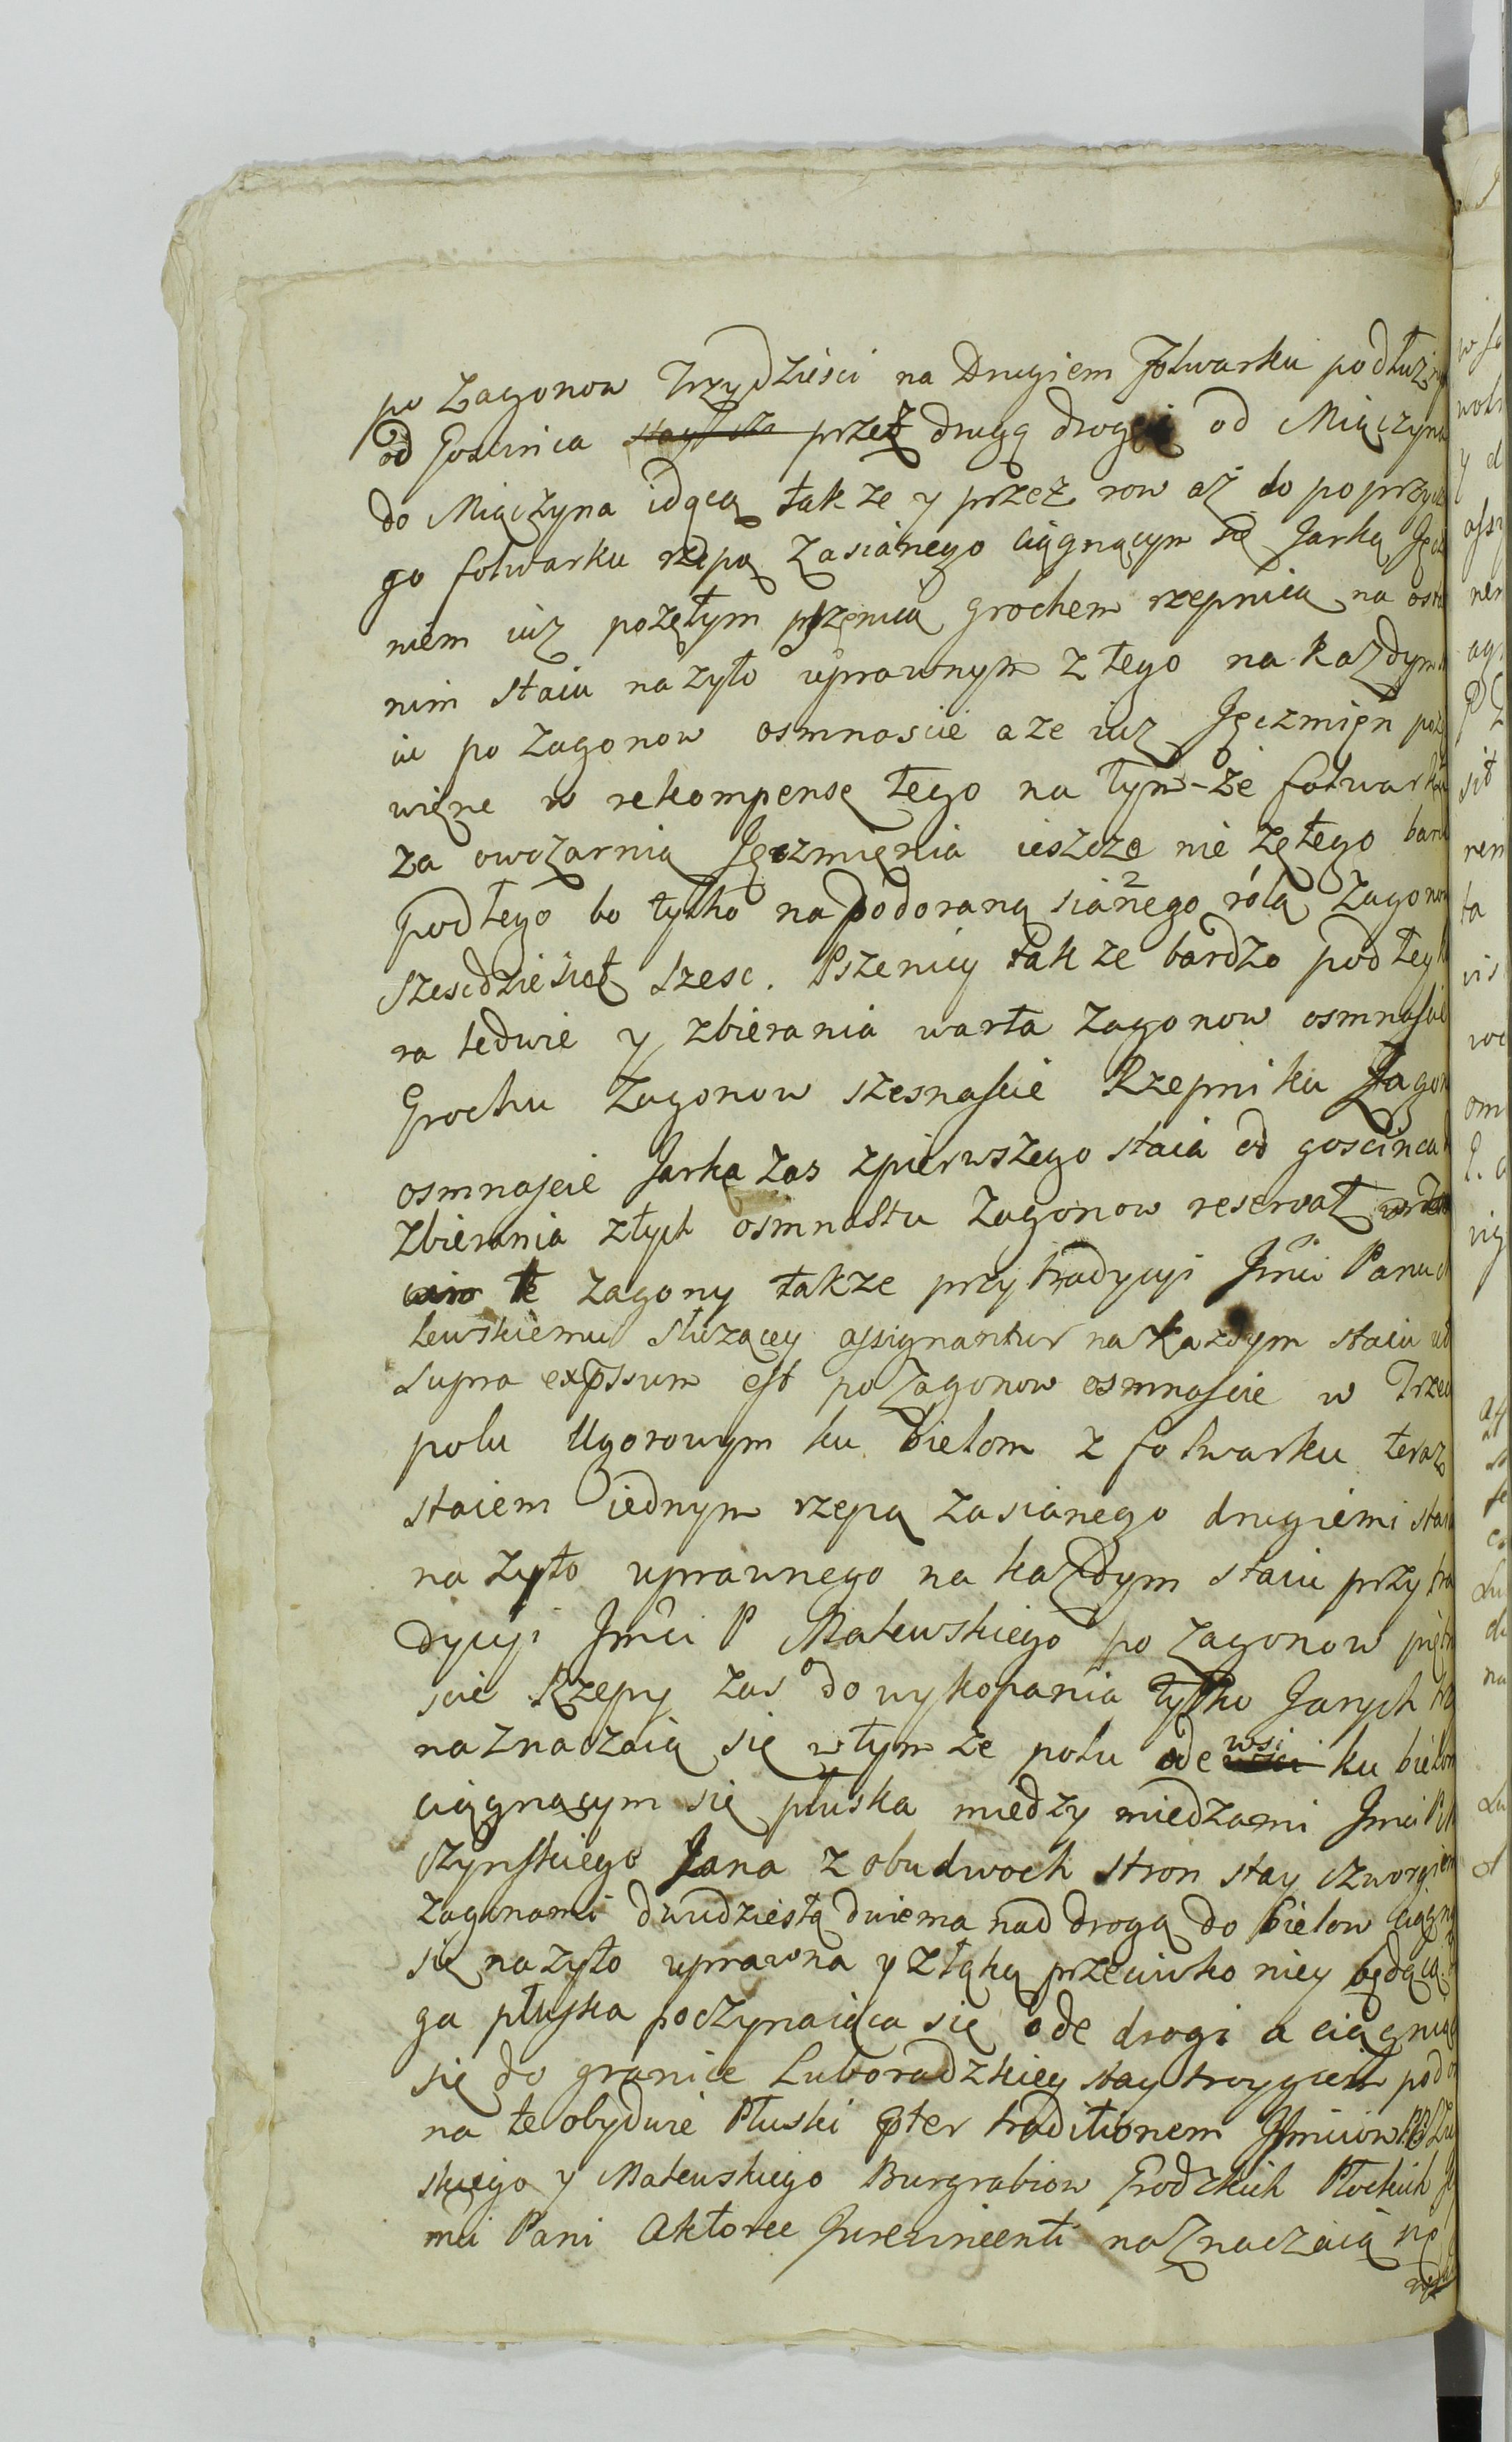 po Zagonow Trzydziesci na Drugiem Folwarku podłuż
od Goscinca przez drugą drogę od Miączyna
do Miączyna idącą także y przez row aż do poprzyc
go folwarku rzepą Zasianego ciągnącym się Jarką Jęcz
niem iuz pozętym przenicą grochem rzepnicą na osta
nim staiu nażyto uprawnym z tego na każdym
iu po Zagonow osmnascie aze iuz Jęczmięn poz
więne w rekompensę tego na tym-że folwarku
za owczarnią Jęczmięnia ieszcze nie zętego bard
podłego bo tylko napodoraną sianego rólą Zagonow
szescdziesiąt szesc. Pszenicy także bardzo podłey
ra ledwie y zbierania warta Zagonow osmnascie
Grochu Zagonow szesnascie Rzepniku Zagon
osmnascie Jarka zas zpierwszego staia od goscinca
Zbierania złych osmnastu Zagonow reservat
te Zagony także przy tradycyi Jmci Panu
lewskiemu służącey assignantur na Każdym staiu ut
supra expssum est po Zagonow osmnascie w Trzec
polu Ugorowym ku Bielom z folwarku teraz
staiem iednym rzepą zasianego drugiemi stai
na żyto uprawnego na każdym staiu przy tra
dycyi Jmci P Malewskiego po Zagonow pięt
scie Rzepy zas do wykopania tylko Jarych
naznaczaią się w tym ze polu ode wsi ku bielom
ciągnącym się płuska między miedzami Jmci P
szynskiego Jana z obudwoch stron stay czworgiem
Zagonami dwudziestą dwiema nad drogą do Bielow ciągną
się nażyto uprawna y złąką przeciwko niey będącą
ga płuska poczynaiąca się ode drogi a ciągnąc
się do granice Luboradzkiey stay troygiem pod
na te obydwie Płuski pter traditionem Jmciow PP
skiego y Malewskiego Burgrabiow Grodzkich Płockich
mci Pani Aktorce Jurevincenti naznaczaią się